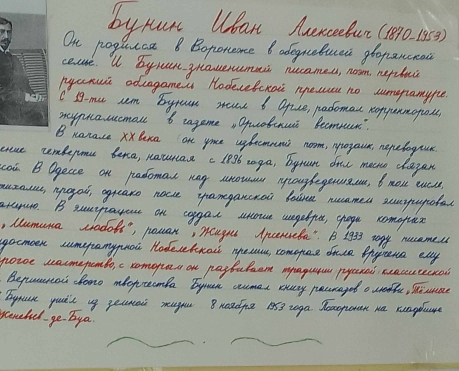 Бунин Иван Алексеевич (1870-1953)
Он родился в Воронеже в обедневшей дворянской
семье. И Бунин-знаменитый писатель, поэт, первый
русский обладатель Нобелевской премии по литературе.
С 19-ти лет Бунин жил в Орле, работал корректором,
журналистом в газете „Орловский вестник".
В начале XX века он уже известный поэт, прозаик, переводчик.
ение четверти века, начиная с 1896 года, Бунин был тесно связан
сой. В Одессе он работал над многими произведениями, в том числе,
тихами, прозой, однако после гражданской войны писатель эмигрировал
анцию. В эмиграции он создал многие шедевры, среди которых
„Митина любовь", роман „Жизнь Арсеньева". В 1933 году писатель
удостоен литературной Нобелевской премии, которая была вручена ему
рогое мастерство, с которым он развивает традиции русской классической
. Вершиной своего творчества Бунин считал книгу рассказов о любви „Тёмные
Бунин ушёл из земной жизни 8 ноября 1953 года. Похоронен на кладбище
Женевьев-де-Буа.